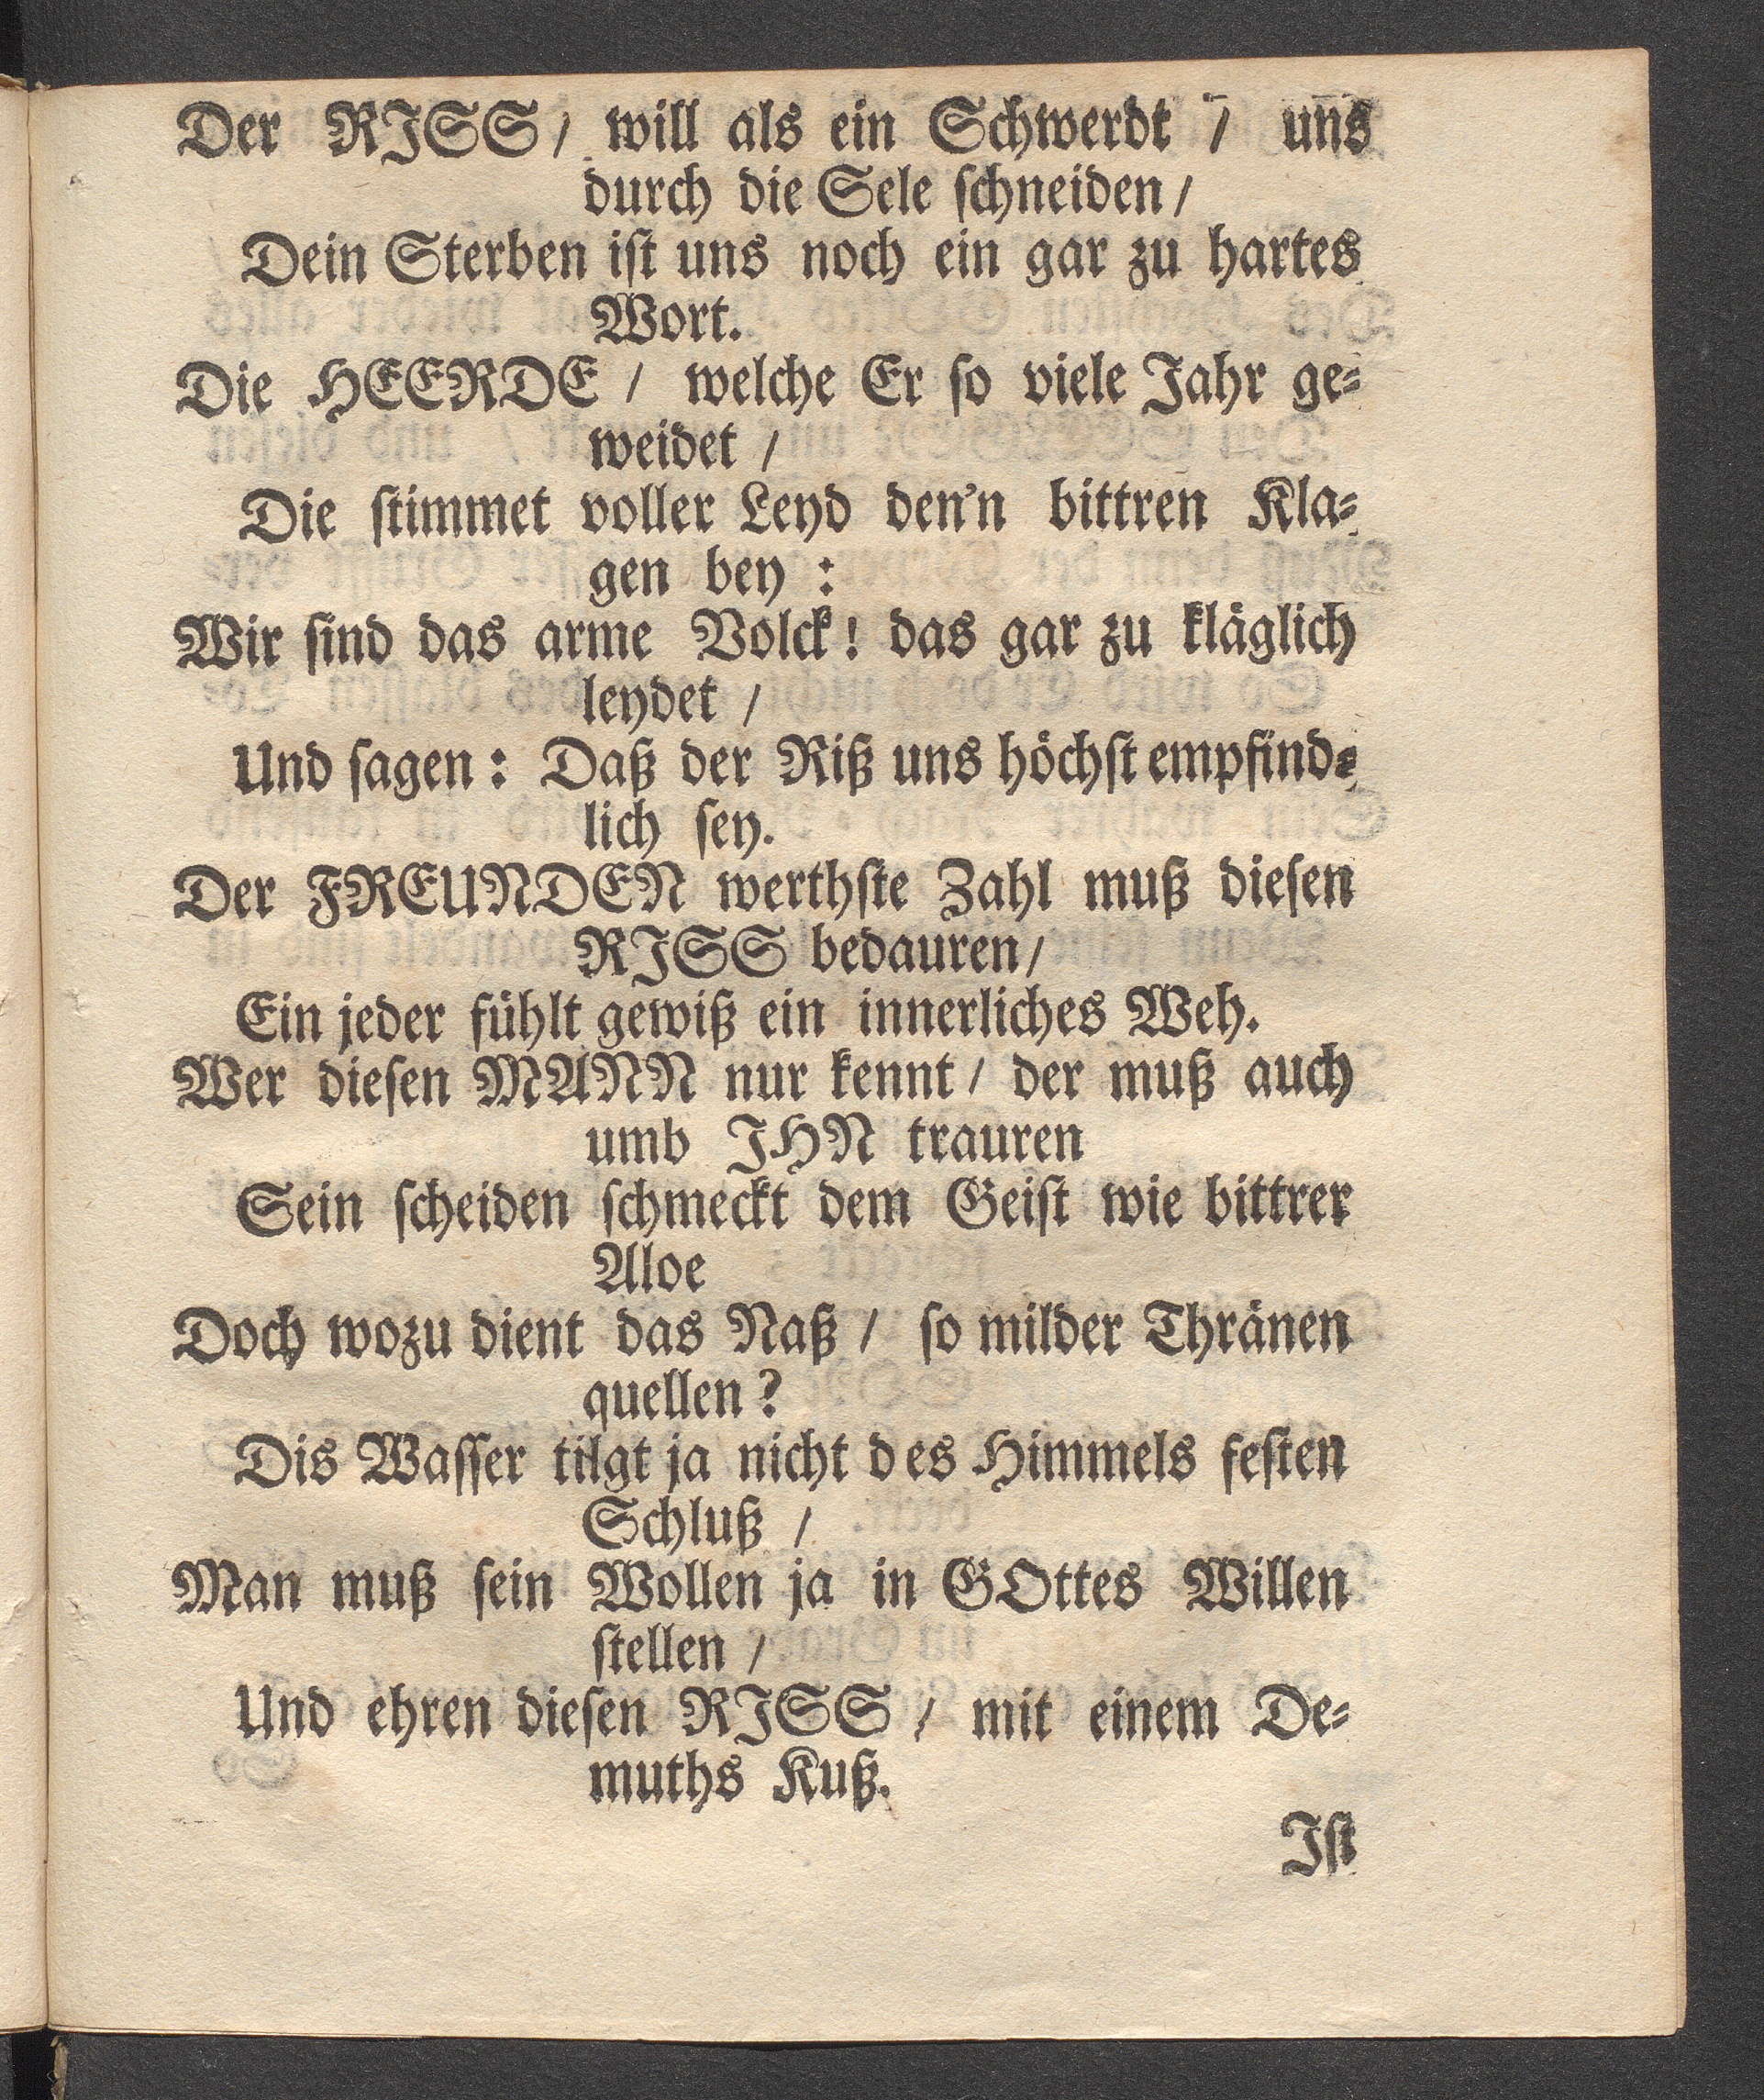 Der RJSS / will als ein Schwerdt / uns
durch die Sele ſchneiden /
Dein Sterben iſt uns noch ein gar zu hartes
Wort.
Die HEERDE / welche Er ſo viele Jahr ge⸗
weidet /
Die ſtimmet voller Leyd den'n bittren Kla⸗
gen bey :
Wir ſind das arme Volck! das gar zu kläglich
leydet /
Und ſagen: Daß der Riß uns höchſt empfind⸗
lich ſey.
Der FREUNDEN werthſte Zahl muß dieſen
RJSS bedauren /
Ein jeder fühlt gewiß ein innerliches Weh.
Wer dieſen MANN nur kennt / der muß auch
umb JHN trauren
Sein ſcheiden ſchmeckt dem Geiſt wie bittrer
Aloe
Doch wozu dient das Naß / ſo milder Thränen
quellen?
Dis Waſſer tilgt ja nicht des Himmels feſten
Schluß /
Man muß ſein Wollen ja in GOttes Willen
ſtellen /
Und ehren dieſen RJSS / mit einem De⸗
muths Kuß.
Jſt